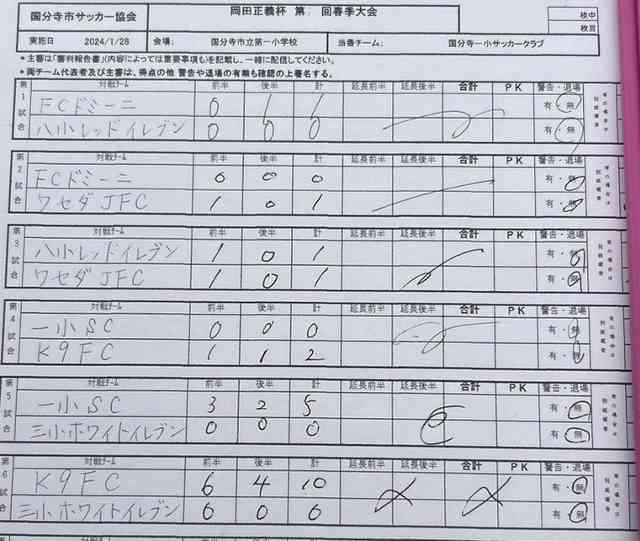 国分寺市サッカー協会 岡田正義杯 第 回春季大会 枚中
枚目
実施日 2024/1/28 会場: 国分寺市立第一小学校 当番チーム: 国分寺一小サッカークラブ
*主審は「審判報告書」(内容によっては重要事項も)を記載し、一緒に配信してください。
*両チーム代表者及び主審は、得点の他 警告や退場の有無も確認の上署名する。
第1試合 対戦チーム 前半 後半 計 延長前半 延長後半 合計 PK 警告・退場
FCドミーニ 0 1 1 有・無
八小レッドイレブン 0 0 0 有・無
第2試合 対戦チーム 前半 後半 計 延長前半 延長後半 合計 PK 警告・退場
FCドミーニ 0 0 0 有・無
ワセダJFC 1 0 1 有・無
第3試合 対戦チーム 前半 後半 計 延長前半 延長後半 合計 PK 警告・退場
八小レッドイレブン 1 0 1 有・無
ワセダJFC 1 0 1 有・無
第4試合 対戦チーム 前半 後半 計 延長前半 延長後半 合計 PK 警告・退場
一小SC 0 0 0 有・無
K9FC 1 1 2 有・無
第5試合 対戦チーム 前半 後半 計 延長前半 延長後半 合計 PK 警告・退場
一小SC 3 2 5 有・無
三小ホワイトイレブン 0 0 0 有・無
第6試合 対戦チーム 前半 後半 計 延長前半 延長後半 合計 PK 警告・退場
K9FC 6 4 10 有・無
三小ホワイトイレブン 0 0 0 有・無